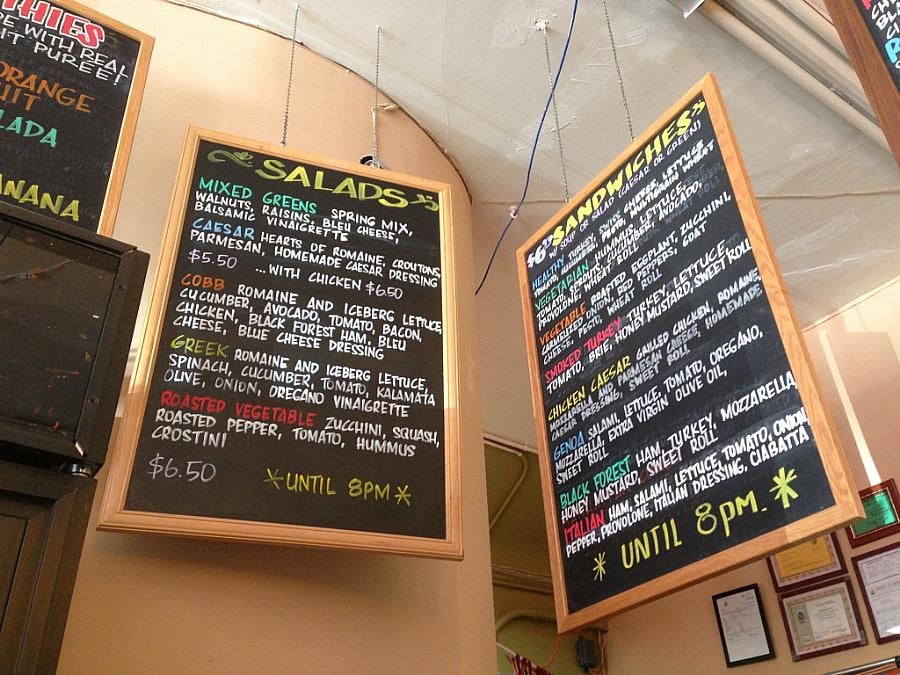 THIES
E WITH REAL
HT PUREE!
ORANGE
UIT
LADA
ANANA
SALADS
MIXED GREENS SPRING MIX,
WALNUTS, RAISINS, BLEU CHEESE,
BALSAMIC VINAIGRETTE
CAESAR HEARTS OF ROMAINE, CROUTONS,
PARMESAN, HOMEMADE CAESAR DRESSING
$5.50 ...WITH CHICKEN $6.50
COBB ROMAINE AND ICEBERG LETTUCE,
CUCUMBER, AVOCADO, TOMATO, BACON,
CHICKEN, BLACK FOREST HAM, BLEU
CHEESE, BLUE CHEESE DRESSING
GREEK ROMAINE AND ICEBERG LETTUCE,
SPINACH, CUCUMBER, TOMATO, KALAMATA
OLIVE, ONION, OREGANO VINAIGRETTE
ROASTED VEGETABLE ZUCCHINI, SQUASH,
ROASTED PEPPER, TOMATO, HUMMUS
CROSTINI
$6.50 *UNTIL 8PM*
SANDWICHES
W/ SOUP OR SALAD (CAESAR OR GREEN)
HEALTHY TURKEY, SWISS CHEESE, LETTUCE
TOMATO, MULTIGRAIN WHEAT
VEGETARIAN HUMMUS, LETTUCE,
TOMATO, SPROUTS, CUCUMBER, AVOCADO,
PROVOLONE, WHEAT ROLL
VEGETABLE ROASTED EGGPLANT, ZUCCHINI,
CARMELIZED ONION, RED PEPPERS, GOAT
CHEESE, PESTO, WHEAT ROLL
SMOKED TURKEY TURKEY, LETTUCE,
TOMATO, BRIE, HONEY MUSTARD, SWEET ROLL
CHICKEN CAESAR GRILLED CHICKEN, ROMAINE,
MOZZARELLA, AND PARMESAN CHEESE, HOMEMADE
CAESAR DRESSING, SWEET ROLL
GENOA SALAMI, LETTUCE, TOMATO, OREGANO,
MOZZARELLA, EXTRA VIRGIN OLIVE OIL,
SWEET ROLL
BLACK FOREST HAM, TURKEY, MOZZARELLA
HONEY MUSTARD, SWEET ROLL
ITALIAN HAM, SALAMI, LETTUCE, TOMATO, ONION
PEPPER, PROVOLONE, ITALIAN DRESSING, CIABATTA
* UNTIL 8PM. *